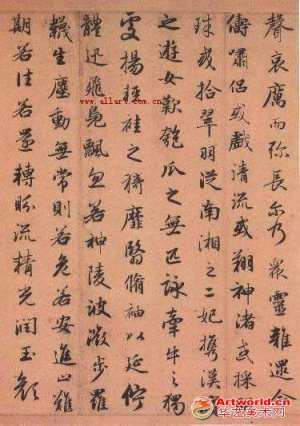 聲哀厲而彌長爾乃衆靈雜遝命
儔嘯侶或戲清流或翔神渚或採
珠或拾翠羽從南湘之二妃攜漢
之遊女歎匏瓜之無匹詠牽牛之獨
處揚輕袿之猗靡翳脩袖以延佇
體迅飛鳧飄忽若神陵波微步羅
韈生塵動無常則若危若安進止難
期若往若還轉眄流精光潤玉顏
Artworld.cn